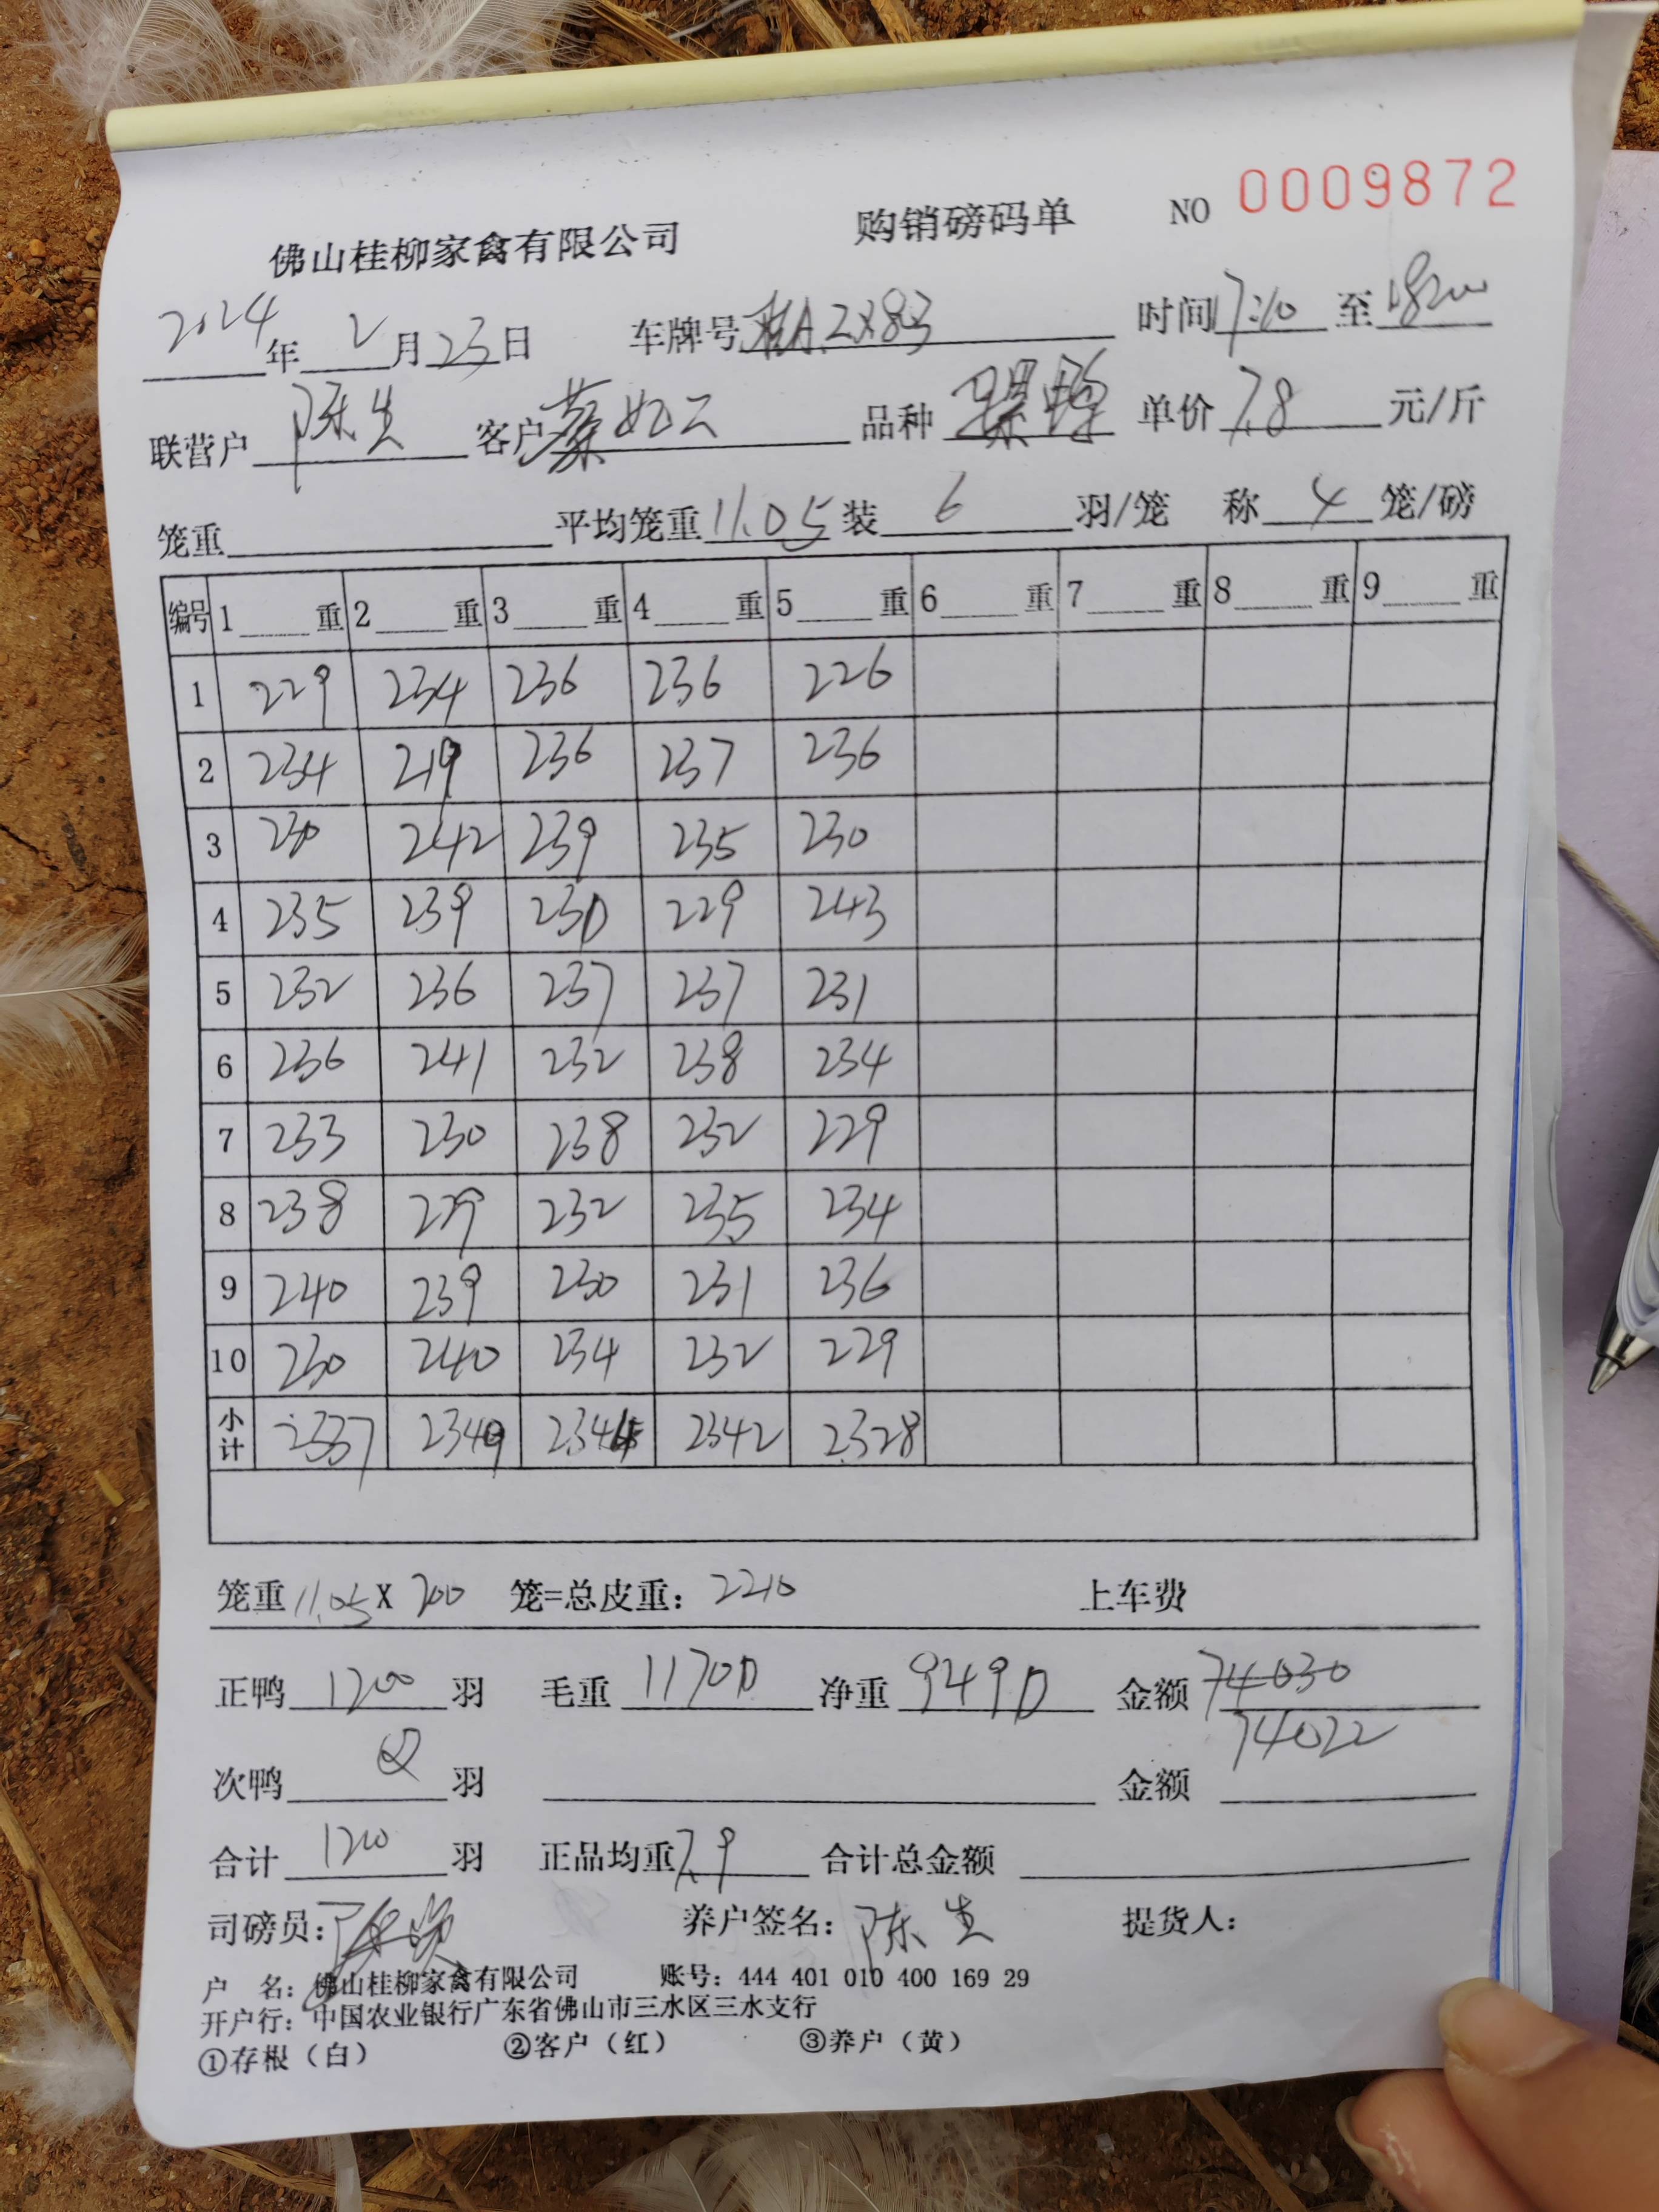 佛山桂柳家禽有限公司 购销磅码单 NO 0009872
2024年 2月23日 车牌号桂A.2X83 时间17:10 至18:20
联营户 陈生 客户 蔡如云 品种 骡鸭 单价 7.8 元/斤
笼重 平均笼重 11.05 装 6 羽/笼 称 4 笼/磅
编号 1 重 2 重 3 重 4 重 5 重 6 重 7 重 8 重 9 重
1 229 234 236 236 226
2 234 219 236 237 236
3 230 242 239 235 230
4 235 239 230 229 243
5 232 236 237 237 231
6 236 241 232 238 234
7 233 230 238 232 229
8 238 229 232 235 234
9 240 239 230 231 236
10 230 240 234 232 229
小计 2337 2349 2344 2342 2328
笼重 11.05 X 200 笼=总皮重: 2210 上车费
正鸭 1200 羽 毛重 11700 净重 9490 金额 74030
74022
次鸭 0 羽 金额
合计 1200 羽 正品均重 7.9 合计总金额
司磅员: 养户签名: 陈生 提货人:
户 名: 佛山桂柳家禽有限公司 账号: 444 401 010 400 169 29
开户行: 中国农业银行广东省佛山市三水区三水支行
①存根（白） ②客户（红） ③养户（黄）